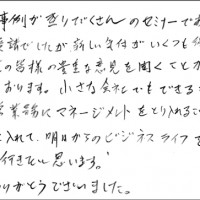 事例が盛りだくさんのセミナーで
講でしたが新しい気付がいくつも
の皆様の貴重な意見を聞くことが
おります。小さな会社でもできる
営業部にマネージメントをとり入れる
入れて、明日からのビジネスライフを
行きたい思います。
りがとうございました。